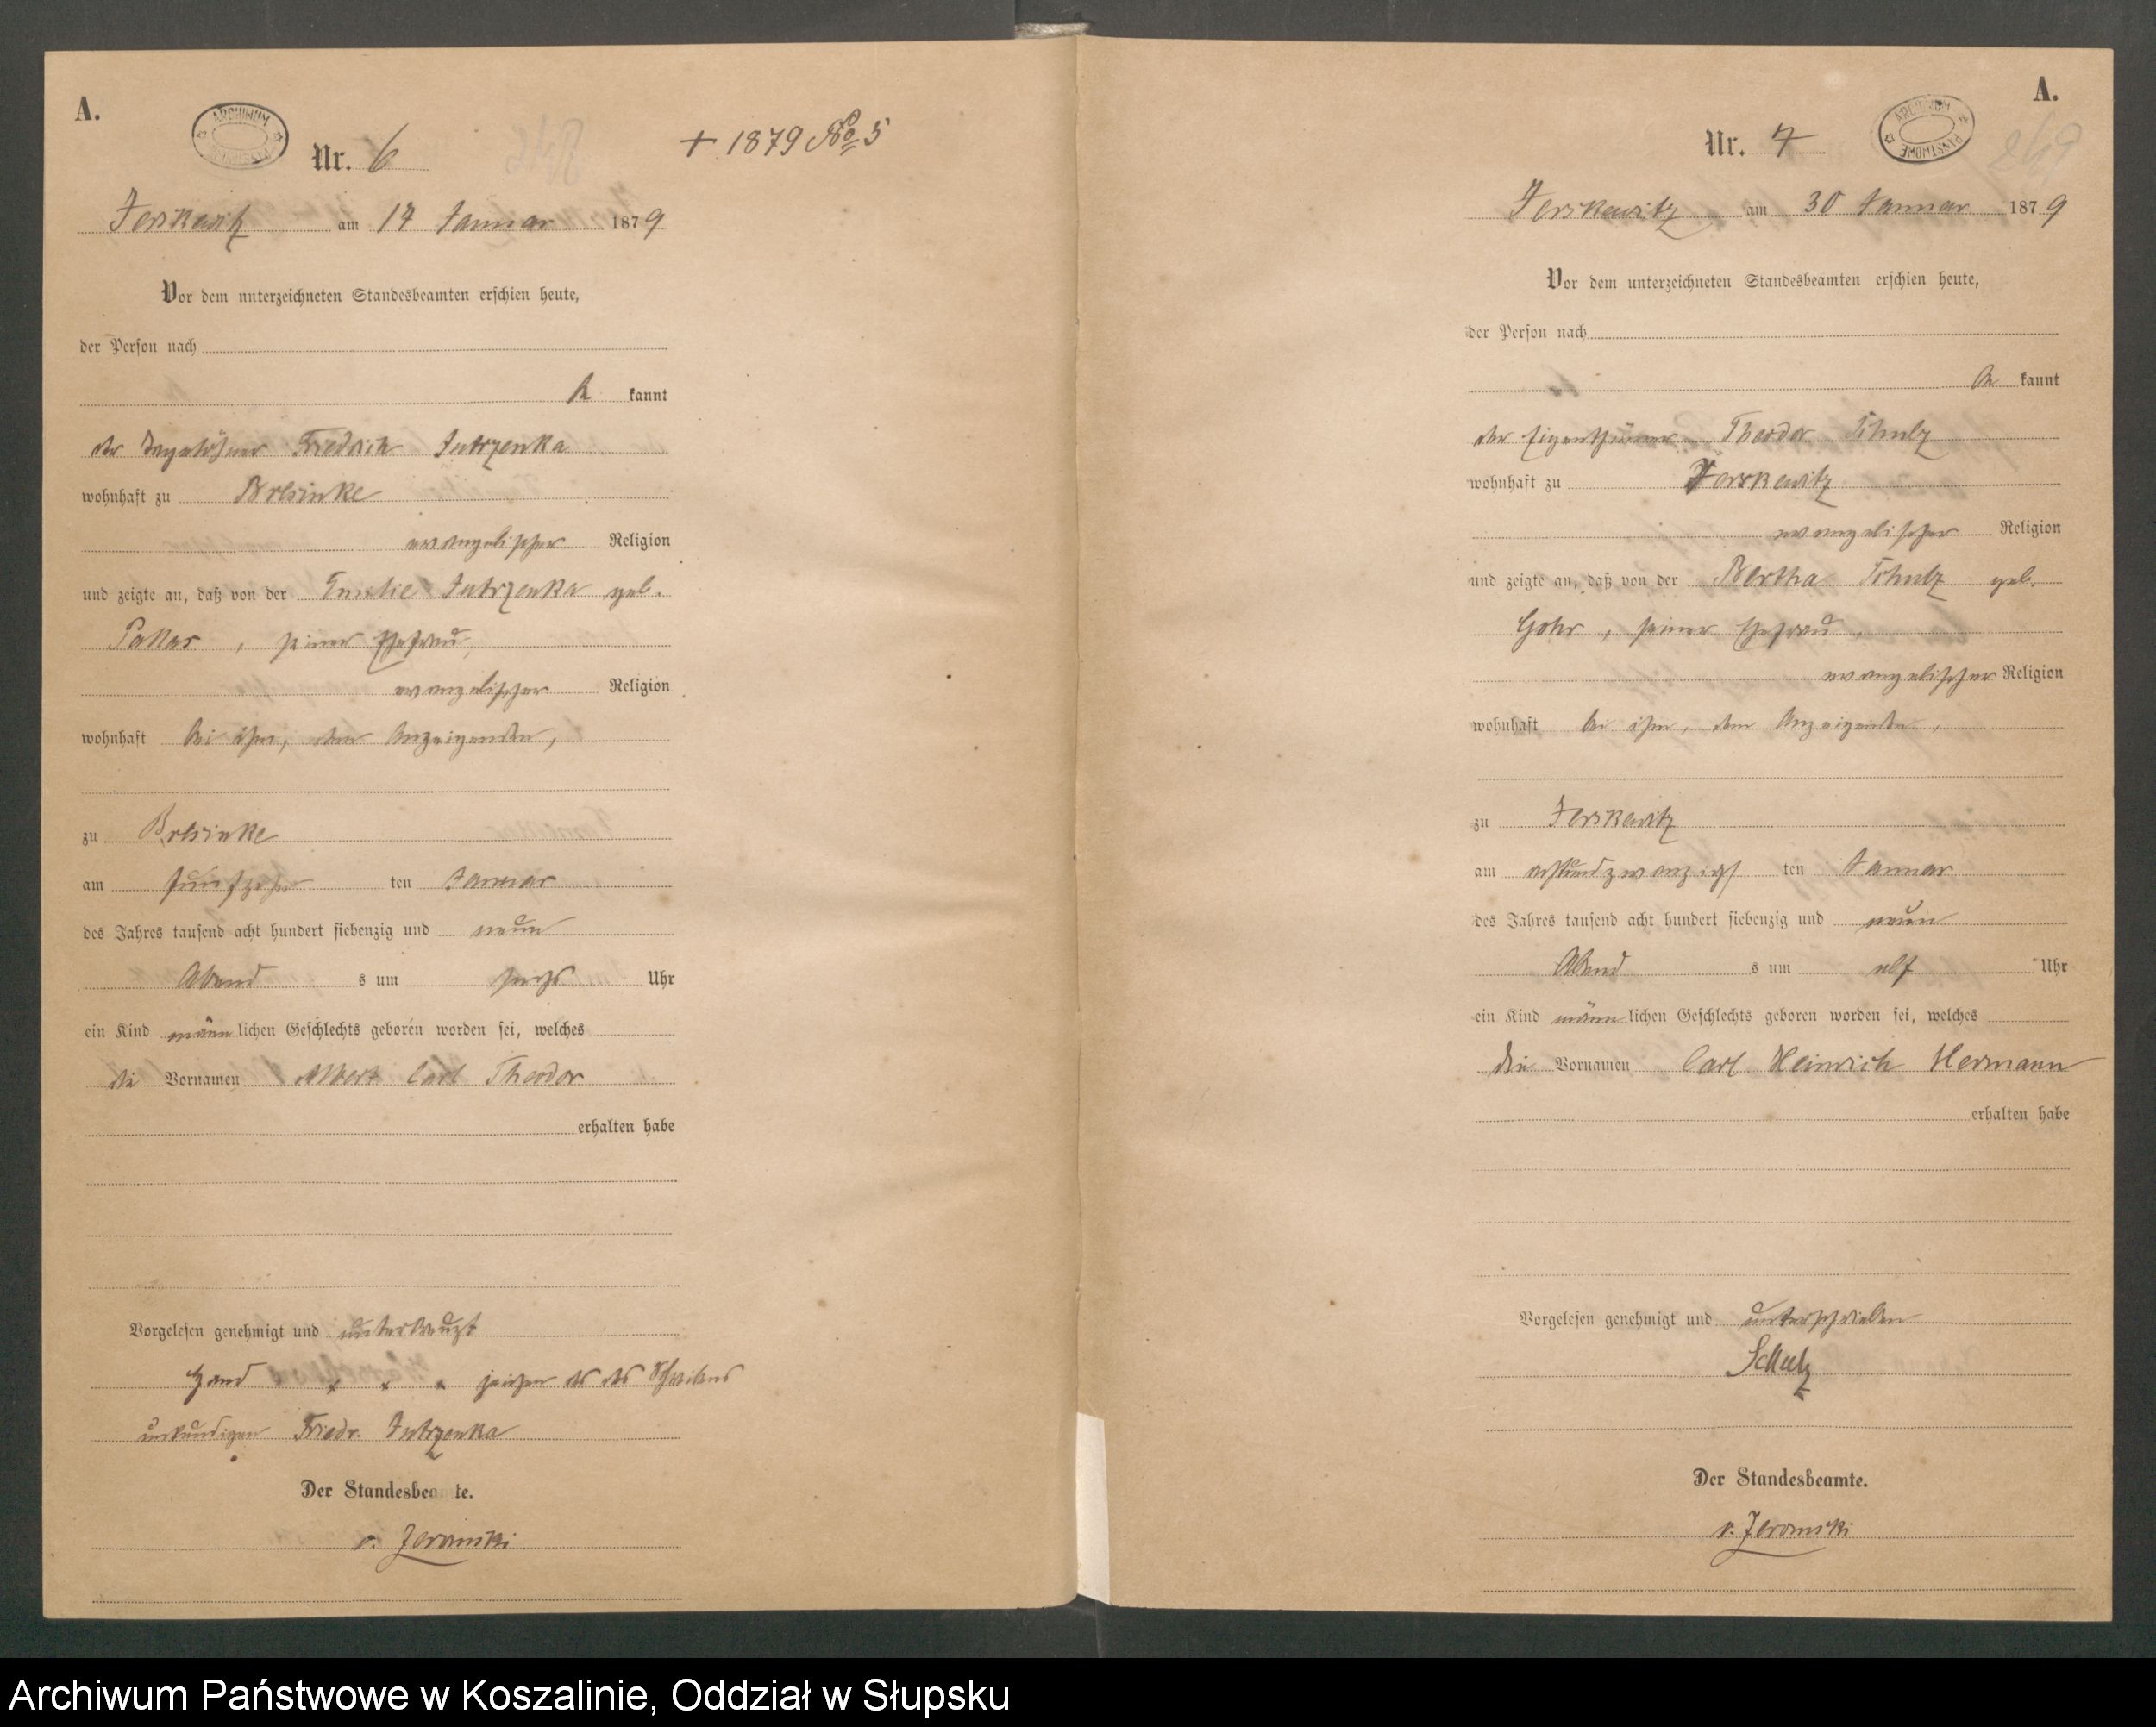 A.
ARCHIWUM PAŃSTWOWE
Nr. 6
+ 1879 No 5
Jerskewitz am 17 Januar 1879
Vor dem unterzeichneten Standesbeamten erschien heute,
der Person nach
be kannt
der Tagelöhner Friedrich Jutrzenka
wohnhaft zu Bresinke
evangelischer Religion
und zeigte an, daß von der Emilie Jutrzenka geb.
, seiner Ehefrau,
evangelischer Religion
wohnhaft bei ihm, dem Anzeigenden,
zu Bresinke
am fünfzehn ten Januar
des Jahres tausend acht hundert siebenzig und neun
Abend s um sechs Uhr
ein Kind männ lichen Geschlechts geboren worden sei, welches
die Vornamen Albert Carl Theodor
erhalten habe
Vorgelesen genehmigt und unterkreuzt
Hand x x x zeichen des des Schreibens
unkundigen Friedr. Jutrzenka
Der Standesbeamte.
A.
ARCHIWUM PAŃSTWOWE
Nr. 7
Jerskewitz am 30 Januar 1879
Vor dem unterzeichneten Standesbeamten erschien heute,
der Person nach
be kannt
der Eigenthümer Theodor Schulz
wohnhaft zu Jerskewitz
evangelischer Religion
und zeigte an, daß von der Bertha Schulz geb.
Gohr, seiner Ehefrau,
evangelischer Religion
wohnhaft bei ihm, dem Anzeigenden,
zu Jerskewitz
am achtundzwanzigs ten Januar
des Jahres tausend acht hundert siebenzig und neun
Abend s um elf Uhr
ein Kind männ lichen Geschlechts geboren worden sei, welches
die Vornamen Carl Heinrich Hermann
erhalten habe
Vorgelesen genehmigt und unterschrieben
Schulz
Der Standesbeamte.
Archiwum Państwowe w Koszalinie, Oddział w Słupsku